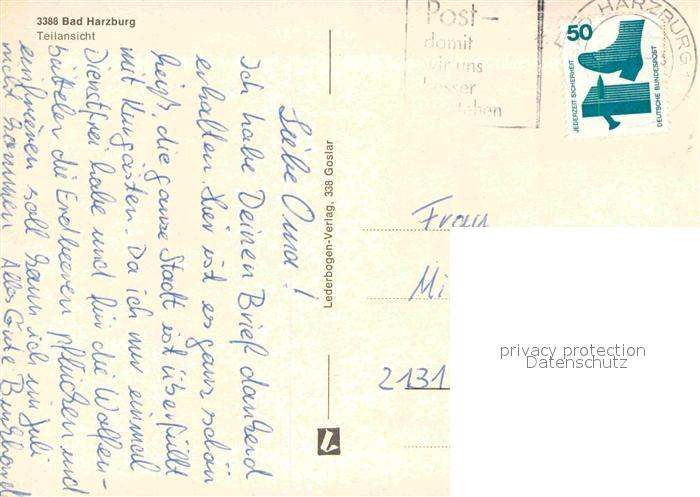 3388 Bad Harzburg
Teilansicht
Liebe Oma!
Ich habe Deinen Brief dankend
erhalten. Hier ist es ganz schön
heiß die ganze Stadt ist überfüllt
mit Kurgästen. Da ich nur einmal
Dienstfrei habe und für die Wolfen-
bütteler die Erdbeeren pflücken und
einfrieren soll kann ich im Juli
nicht kommen Alles Gute Burkhard
Lederbogen-Verlag, 338 Goslar
Post-
damit
wir uns
besser
HARZBURG 1
50
JEDERZEIT SICHERHEIT
DEUTSCHE BUNDESPOST
Frau
Mi
2131
privacy protection
Datenschutz